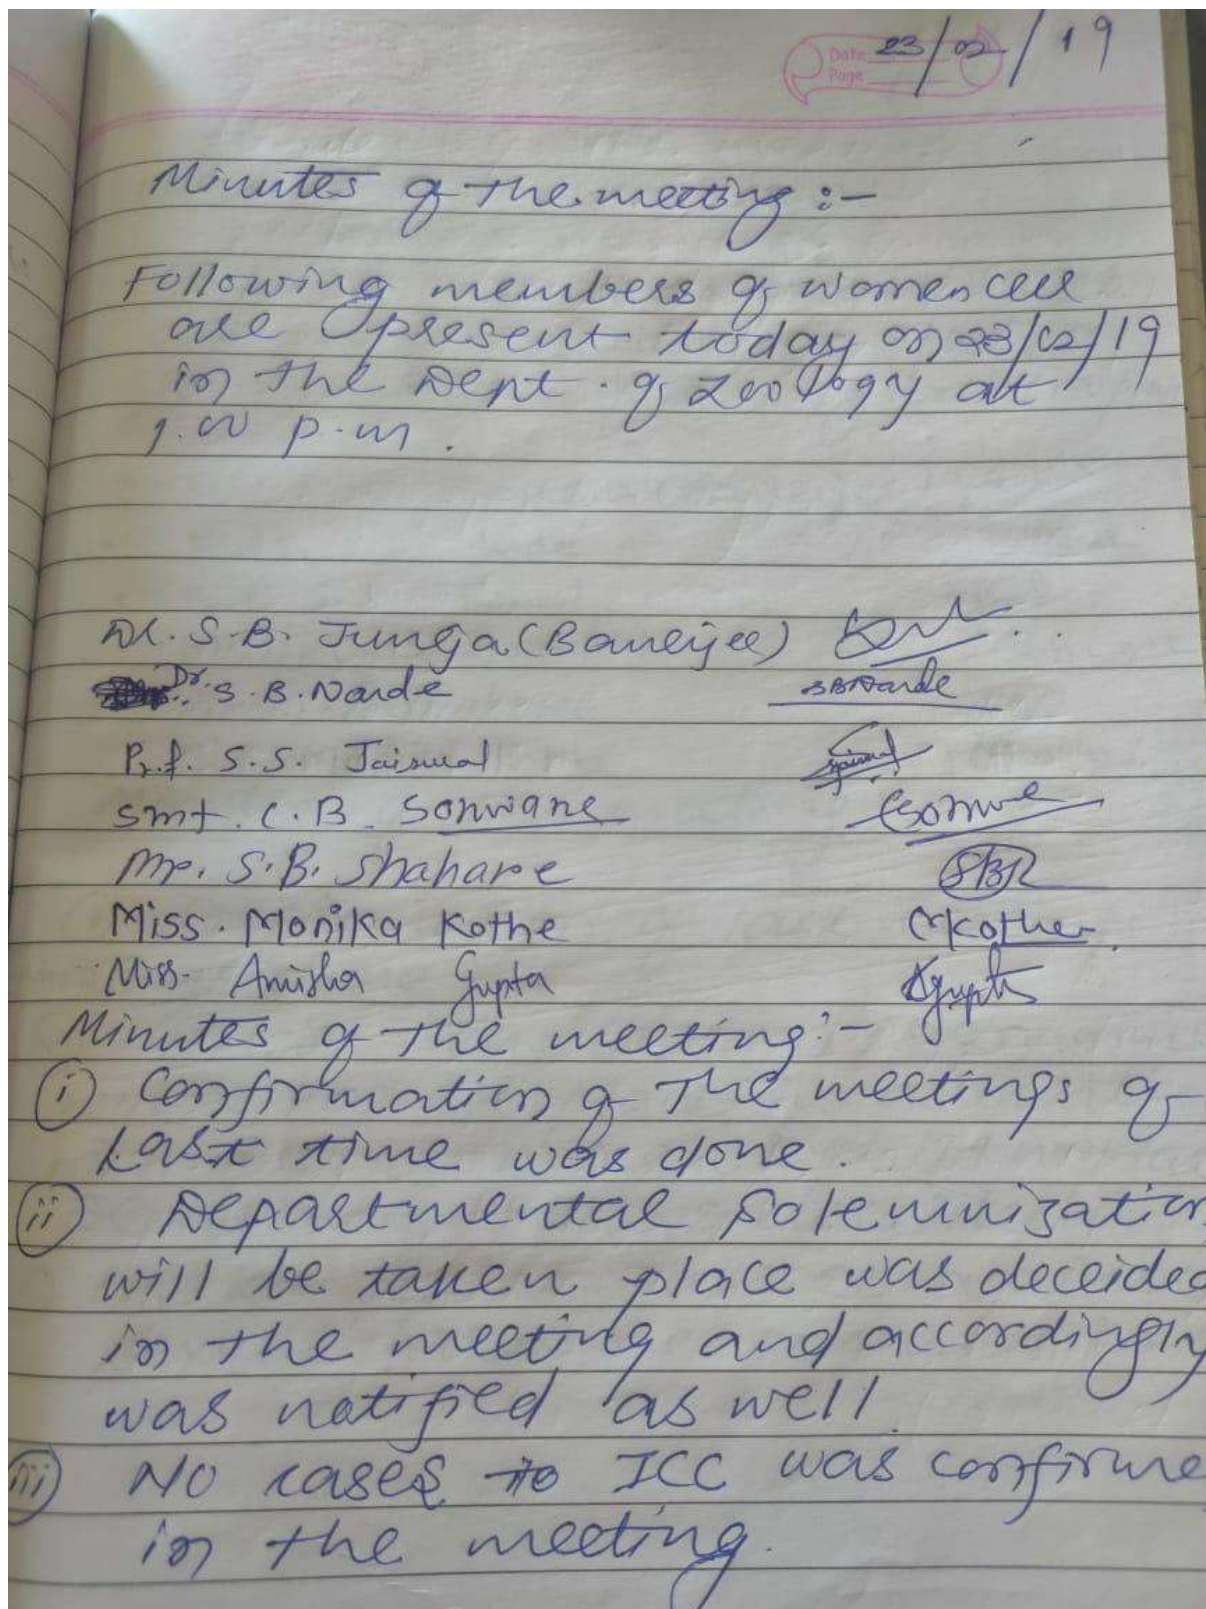 Date 23/02/19
Page
Minutes of the meeting :-
Following members of women cell
are present today on 23/02/19
in the Dept. of Zoology at
1.00 p.m.
Dr. S.B. Junga (Banerjee)
Dr. S.B. Narde SBNarde
Prof. S.S. Jaiswal
Smt. C.B. Sonwane
Mr. S.B. Shahare
Miss. Monika Kothe MKothe
Miss. Anisha Gupta AGupta
Minutes of the meeting:-
(i) Confirmation of the meetings of
Last time was done.
(ii) Departmental Solemnization
will be taken place was deceided
in the meeting and accordingly
was notified as well
(iii) No cases to ICC was confirme
in the meeting.